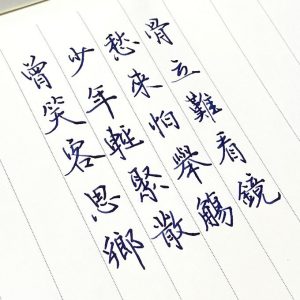 骨立難看鏡
愁來怕舉觴
少年輕聚散
曾笑客思鄉